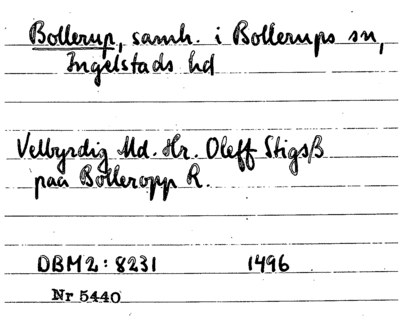 Bollerup, samh. i Bollerups sn,
Ingelstads hd
Velbyrdig Md. Hr. Oleff Stigsß
paa Bolleropp R.
DBM2: 8231 1496
Nr 5440